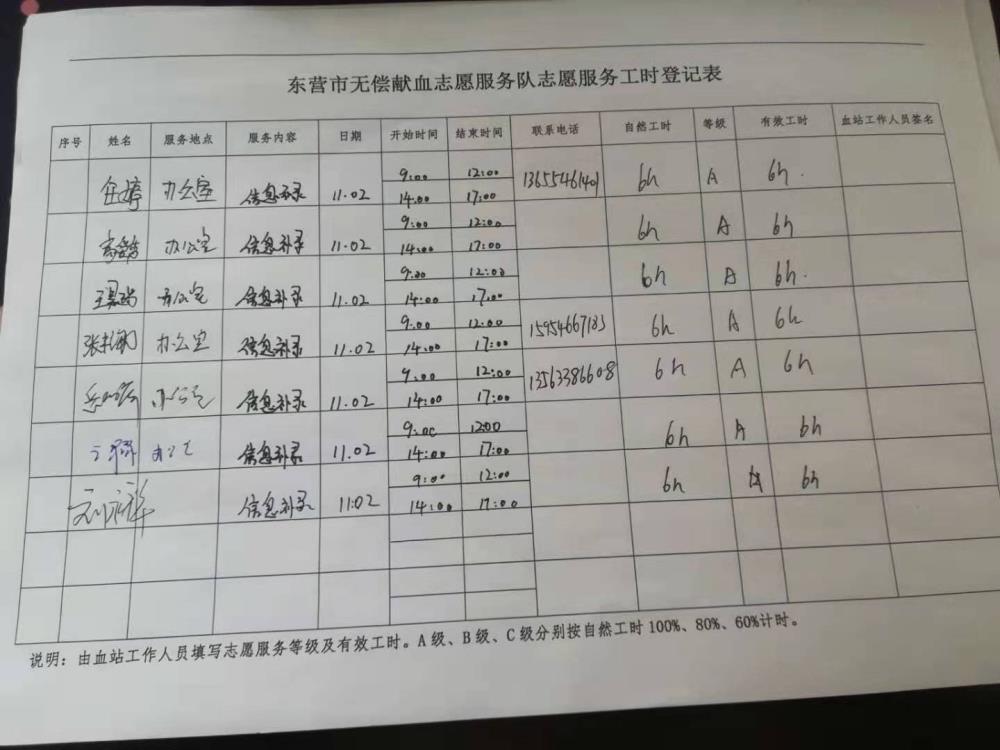 东营市无偿献血志愿服务队志愿服务工时登记表
序号 姓名 服务地点 服务内容 日期 开始时间 结束时间 联系电话 自然工时 等级 有效工时 血站工作人员签名
任婷 办公室 信息补录 11.02 9:00 12:00 13655461401 6h A 6h.
14:00 17:00
办公室 信息补录 11.02 9:00 12:00 6h A 6h
14:00 17:00
办公室 信息补录 11.02 9:00 12:00 6h A 6h.
14:00 17:00
办公室 信息补录 11.02 9:00 12:00 6h A 6h
14:00 17:00
办公室 信息补录 11.02 9:00 12:00 13563386608 6h A 6h
14:00 17:00
信息补录 11.02 9:00 12:00 6h A 6h
14:00 17:00
信息补录 11:02 9:00 12:00 6h A 6h
14:00 17:00
说明：由血站工作人员填写志愿服务等级及有效工时。A级、B级、C级分别按自然工时100%、80%、60%计时。